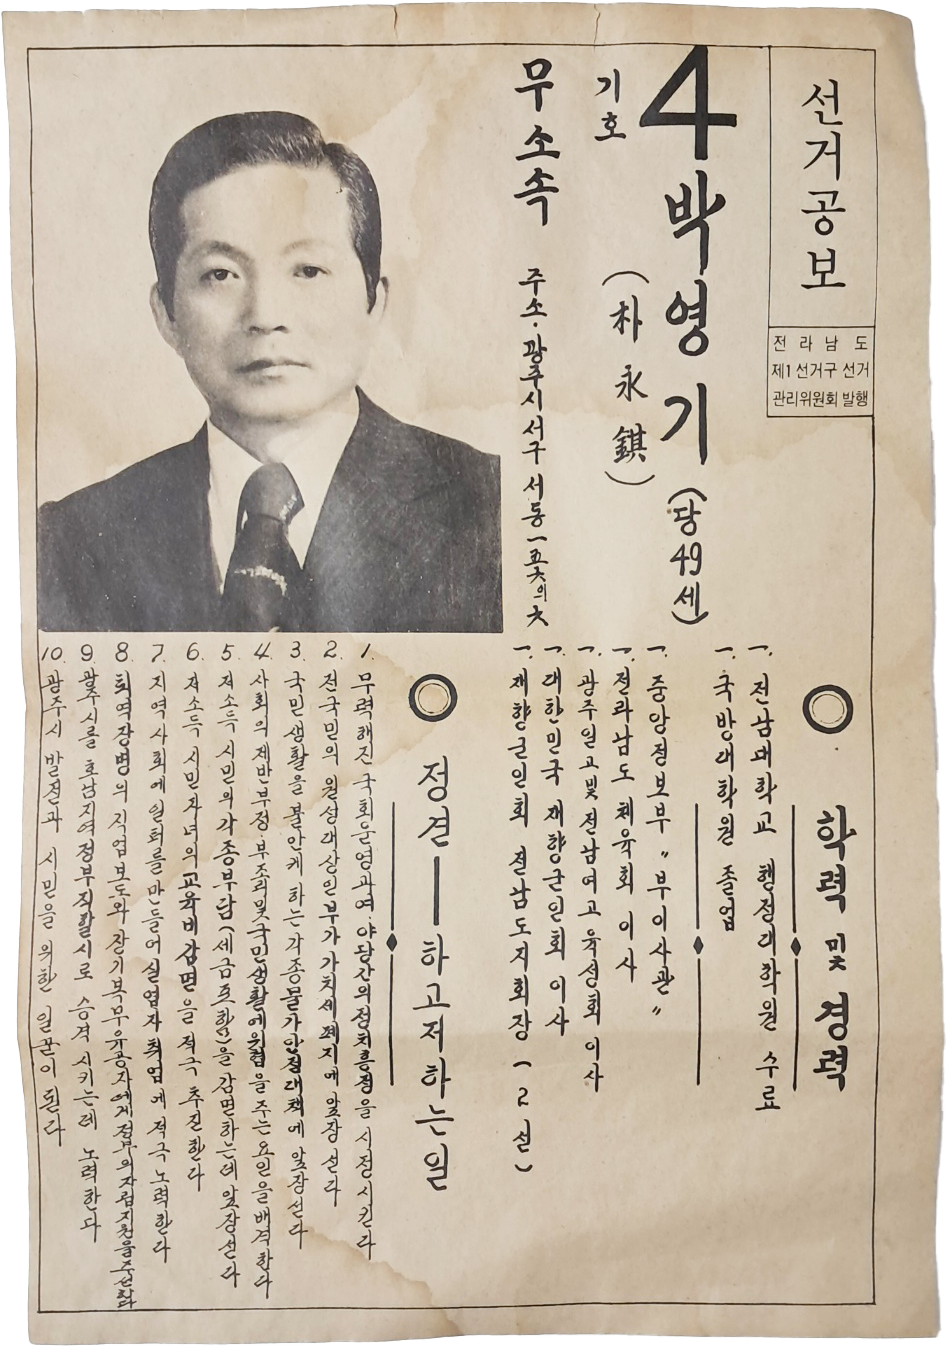 선거공보
전라남도
제1선거구 선거
관리위원회 발행
기호
4
박영기 (당 49세)
(朴永錤)
무소속
주소·광주시 서구 서동 一五六의 六
학력 및 경력
一. 전남대학교 행정대학원 수료
一. 국방대학원 졸업
一. 중앙정보부 "부이사관"
一. 전라남도 체육회 이사
一. 광주일고 및 전남여고 육성회 이사
一. 대한민국 재향군인회 이사
一. 재향군인회 전남도지회장 (2선)
정견 — 하고저 하는 일
1. 무력해진 국회운영과 여·야당간의 정치흥정을 시정시킨다
2. 전국민의 원성대상인 부가가치세 폐지에 앞장선다
3. 국민생활을 불안케 하는 각종 물가안정대책에 앞장선다
4. 사회의 제반부정·부조리 및 국민생활에 위협을 주는 요인을 배격한다
5. 저소득 시민의 각종 부담(세금포함)을 감면하는데 앞장선다
6. 저소득 시민자녀의 교육비 감면을 적극 추진한다
7. 지역사회에 일터를 만들어 실업자 취업에 적극 노력한다
8. 퇴역장병의 직업보도와 장기복무 유공자에게 정부의 자립지원을 주선한다
9. 광주시를 호남지역 정부직활시로 승격시키는데 노력한다
10. 광주시 발전과 시민을 위한 일꾼이 된다